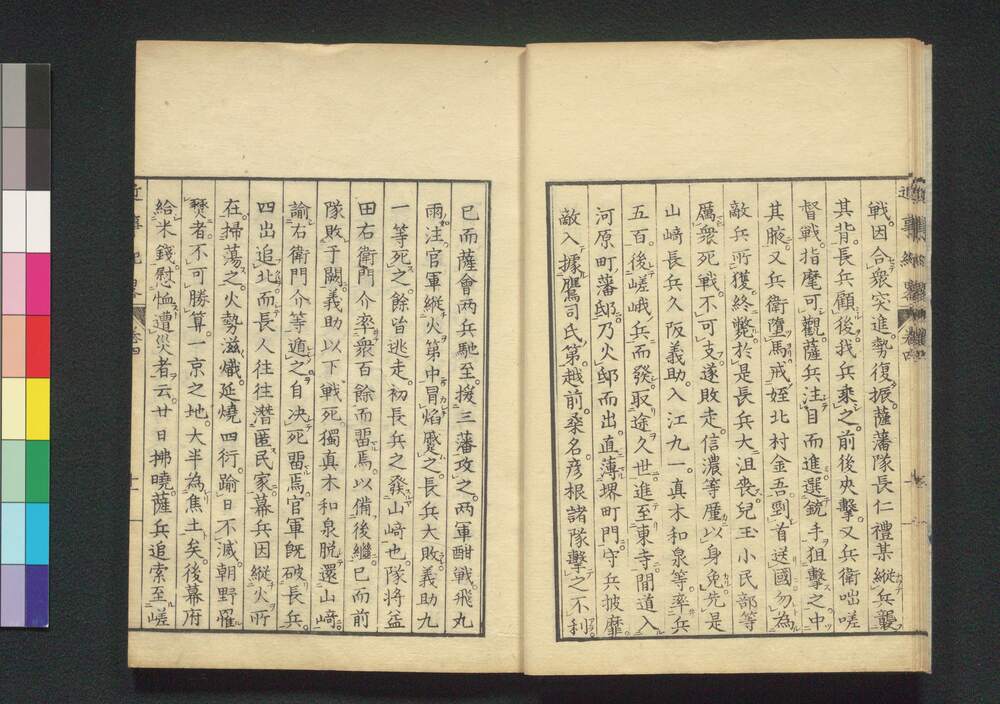 戰。因合衆突進。勢復振。薩藩隊長仁禮某縱兵襲
其背。長兵顧後。我兵乘之。前後夾擊。又兵衛咄嗟
督戰。指麾可觀。薩兵注目而進。選銃手狙擊之。中
其腋。又兵衛墮馬。戒姪北村金吾。剄首送國。勿為
敵兵所獲。終斃。於是長兵大沮喪。兒玉小民部等
厲衆死戰。不可支。遂敗走。信濃等厪以身免。先是
山﨑長兵久阪義助。入江九一。真木和泉等。率兵
五百。後嵯峨兵而發。取途久世。進至東寺。間道入
河原町藩邸。乃火邸而出。直薄堺町門。守兵披靡。
敵入據鷹司氏第。越前。桑名。彦根諸隊擊之不利
已而薩會两兵馳至。援三藩攻之。两軍酣戰。飛丸
雨注。官軍縱火第中。冒焰蹙之。長兵大敗。義助九
一等死之。餘皆逃走。初長兵之發山﨑也。隊将益
田右衛門介率衆百餘而畱焉。以備後繼。已而前
隊敗于闕。義助以下戰死。獨真木和泉脱還山﨑。
諭右衛門介等遁之。自决死畱焉。官軍旣破長兵。
四出追北。而長人往往潜匿民家。幕兵因縱火所
在。掃蕩之。火勢滋熾。延燒四衍。踰日不滅。朝野罹
燹者。不可勝算。一京之地。大半為焦土矣。後幕府
給米錢。慰恤遭災者云。廿日拂曉。薩兵追索至嵯